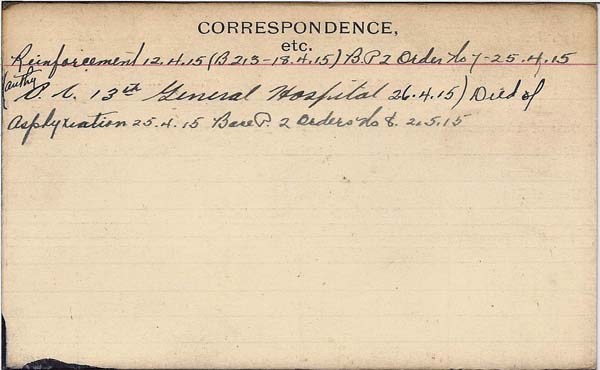 CORRESPONDENCE,
etc.
Reinforcement 12.4.15 (B213-18.4.15) B.P2 Order No 7-25.4.15
(authy
O.C. 13th General Hospital 26.4.15) Died of
Asphyxiation 25.4.15 Base P. 2 Orders No 8. 2.5.15